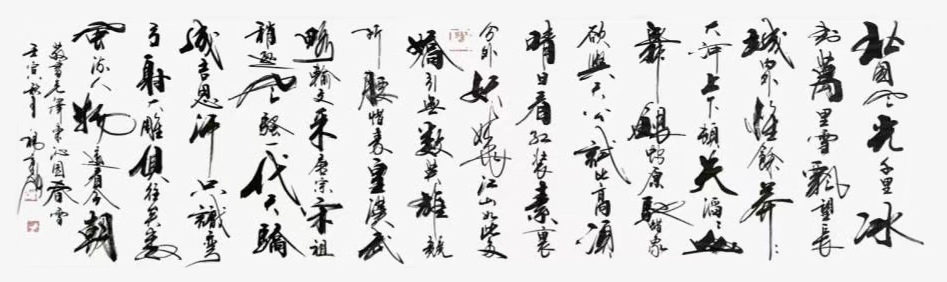 北国风光千里冰
封萬里雪飘望長
城内外惟餘莽〻
大河上下頓失滔〻山
舞銀蛇原馳蜡象
欲與天公試比高须
晴日看红装素裹
分外妖娆江山如此多
嬌引無數英雄競
折腰惜秦皇漢武
略输文采唐宗宋祖
稍逊风骚一代天驕
成吉思汗只識彎
弓射大雕俱往矣数
風流人物还看今朝
敬書毛澤東沁园春雪
壬寅秋月